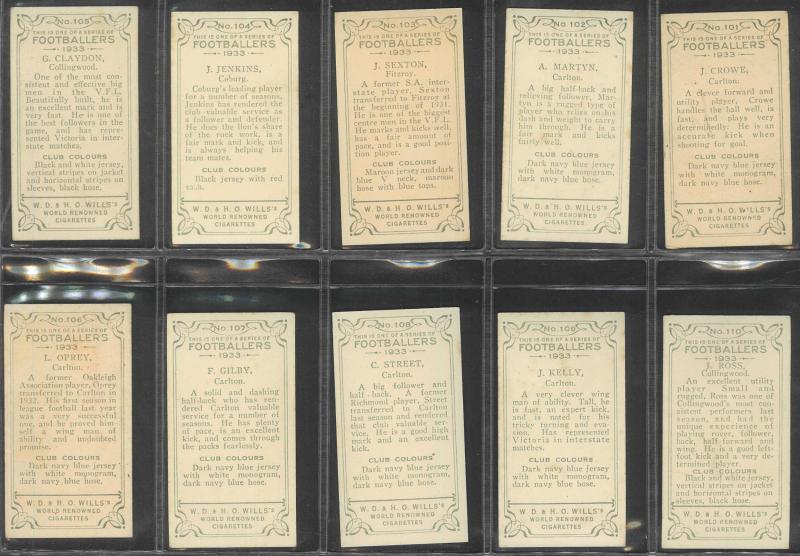 No. 105
THIS IS ONE OF A SERIES OF
FOOTBALLERS
1933
G. CLAYDON,
Collingwood.
One of the most con-
sistent and effective big
men in the V.F.L.
Beautifully built, he is
an excellent mark and is
very fast. He is one of
the best followers in the
game, and has repre-
sented Victoria in inter-
state matches.
CLUB COLOURS
Black and white jersey,
vertical stripes on jacket
and horizontal stripes on
sleeves, black hose.
W. D. & H. O. WILLS's
WORLD RENOWNED
CIGARETTES
No. 104
THIS IS ONE OF A SERIES OF
FOOTBALLERS
1933
J. JENKINS,
Coburg.
Coburg's leading player
for a number of seasons,
Jenkins has rendered the
club valuable service as
a follower and defender.
He does the lion's share
of the ruck work, is a
fair mark and kick, and
is always helping his
team mates.
CLUB COLOURS
Black jersey with red
sash.
W. D. & H. O. WILLS's
WORLD RENOWNED
CIGARETTES
No. 103
THIS IS ONE OF A SERIES OF
FOOTBALLERS
1933
J. SEXTON,
Fitzroy.
A former S.A. inter-
state player, Sexton
transferred to Fitzroy at
the beginning of 1931.
He is one of the biggest
center men in the V.F.L.
He marks and kicks well,
has a fair amount of
pace, and is a good posi-
tion player.
CLUB COLOURS
Maroon jersey and dark
blue V neck, maroon
hose with blue tops.
W. D. & H. O. WILLS's
WORLD RENOWNED
CIGARETTES
No. 102
THIS IS ONE OF A SERIES OF
FOOTBALLERS
1933
A. MARTYN,
Carlton.
A big half-back and
relieving follower, Mar-
tyn is a rugged type of
player who relies on his
dash and weight to carry
him through. He is a
fair mark and kicks
fairly well.
CLUB COLOURS
Dark navy blue jersey
with white monogram,
dark navy blue hose.
W. D. & H. O. WILLS's
WORLD RENOWNED
CIGARETTES
No. 101
THIS IS ONE OF A SERIES OF
FOOTBALLERS
1933
J. CROWE,
Carlton.
A clever forward and
utility player, Crowe
handles the ball well, is
fast, and plays very
determinedly. He is an
accurate kick when
shooting for goal.
CLUB COLOURS
Dark navy blue jersey
with white monogram,
dark navy blue hose.
W. D. & H. O. WILLS's
WORLD RENOWNED
CIGARETTES
No. 106
THIS IS ONE OF A SERIES OF
FOOTBALLERS
1933
L. OPREY,
Carlton.
A former Oakleigh
Association player, Oprey
transferred to Carlton in
1932. His first season in
league football last year
was a very successful
one, and he proved him-
self a wing man of
ability and undoubted
promise.
CLUB COLOURS
Dark navy blue jersey
with white monogram,
dark navy blue hose.
W. D. & H. O. WILLS's
WORLD RENOWNED
CIGARETTES
No. 107
THIS IS ONE OF A SERIES OF
FOOTBALLERS
1933
F. GILBY,
Carlton.
A solid and dashing
half-back who has ren-
dered Carlton valuable
service for a number of
seasons. He has plenty
of pace, is an excellent
kick, and comes through
the packs fearlessly.
CLUB COLOURS
Dark navy blue jersey
with white monogram,
dark navy blue hose.
W. D. & H. O. WILLS's
WORLD RENOWNED
CIGARETTES
No. 108
THIS IS ONE OF A SERIES OF
FOOTBALLERS
1933
C. STREET,
Carlton.
A big follower and
half-back. A former
Richmond player, Street
transferred to Carlton
last season and rendered
that club valuable ser-
vice. He is a good high
mark and an excellent
kick.
CLUB COLOURS
Dark navy blue jersey
with white monogram,
dark navy blue hose.
W. D. & H. O. WILLS's
WORLD RENOWNED
CIGARETTES
No. 109
THIS IS ONE OF A SERIES OF
FOOTBALLERS
1933
J. KELLY,
Carlton.
A very clever wing
man of ability. Tall, he
is fast, an expert kick,
and is noted for his
tricky turning and eva-
sion. Has represented
Victoria in interstate
matches.
CLUB COLOURS
Dark navy blue jersey
with white monogram,
dark navy blue hose.
W. D. & H. O. WILLS's
WORLD RENOWNED
CIGARETTES
No. 110
THIS IS ONE OF A SERIES OF
FOOTBALLERS
1933
J. ROSS,
Collingwood.
An excellent utility
player Small and
rugged, Ross was one of
Collingwood's most con-
sistent performers last
season, and had the
unique experience of
playing rover, follower,
back, half-forward and
wing. He is a good left-
foot kick and a very de-
termined player.
CLUB COLOURS
Black and white jersey,
vertical stripes on jacket
and horizontal stripes on
sleeves, black hose.
W. D. & H. O. WILLS's
WORLD RENOWNED
CIGARETTES